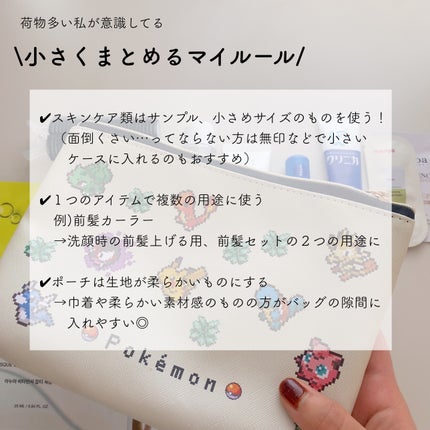 荷物多い私が意識してる
\小さくまとめるマイルール/
✔スキンケア類はサンプル、小さめサイズのものを使う！
（面倒くさい…ってならない方は無印などで小さい
ケースに入れるのもおすすめ）
✔１つのアイテムで複数の用途に使う
例)前髪カーラー
→洗顔時の前髪上げる用、前髪セットの２つの用途に
✔ポーチは生地が柔らかいものにする
→巾着や柔らかい素材感のものの方がバッグの隙間に
入れやすい◎
クリニカ
Pokémon